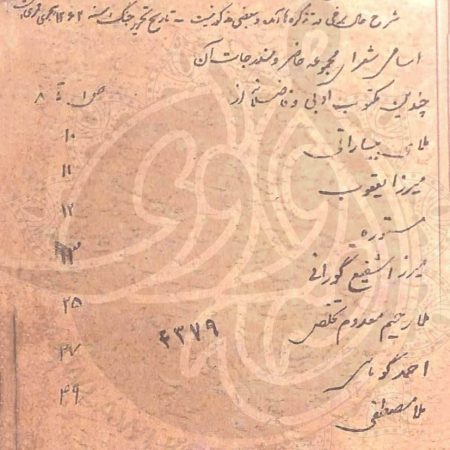 شرح حال برخی در تذکره‌ها آمده و بعضی مذکور نیست - تاریخ تحریر جنگ سنه ۱۲۶۲ هجری قمری
اسامی شعرای مجموعه حاضر و مندرجات آن
چندین مکتوب ادبی و فاضلانه از ص ۱ تا ۸
ملای بیسارانی ۱۰
میرزا یعقوب ۱۱
مستوره ۱۲
میرزا شفیع گورانی ۱۳
ملا رحیم معدوم تخلص ۲۵
۴۳۷۹
احمد کوماسی ۳۷
ملا مصطفی ۴۹